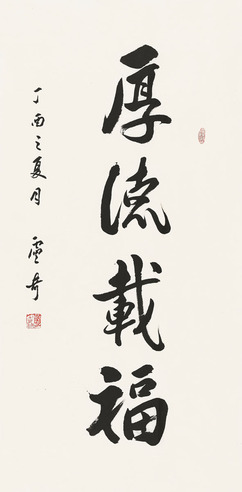 厚德載福
丁酉之夏月